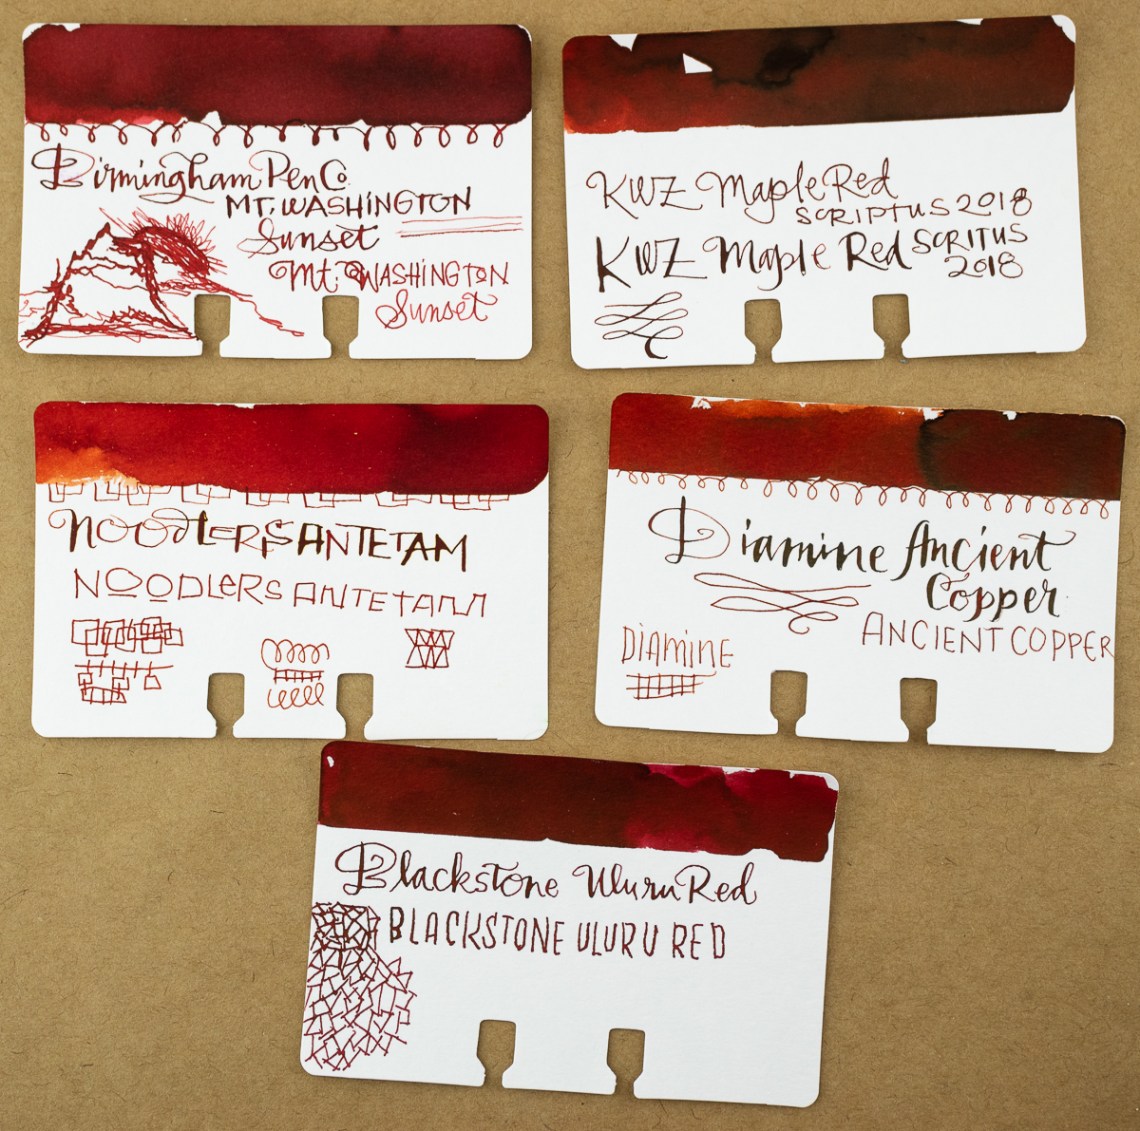 Birmingham Pen Co.
MT. WASHINGTON
Sunset
Mt. WASHINGTON
Sunset
KWZ Maple Red
SCRIPTUS 2018
KWZ Maple Red SCRITUS
2018
NOODLERS ANTETAM
NOODLERS ANTETAM
Diamine Ancient
Copper
ANCIENT COPPER
DIAMINE
Blackstone Uluru Red
BLACKSTONE ULURU RED